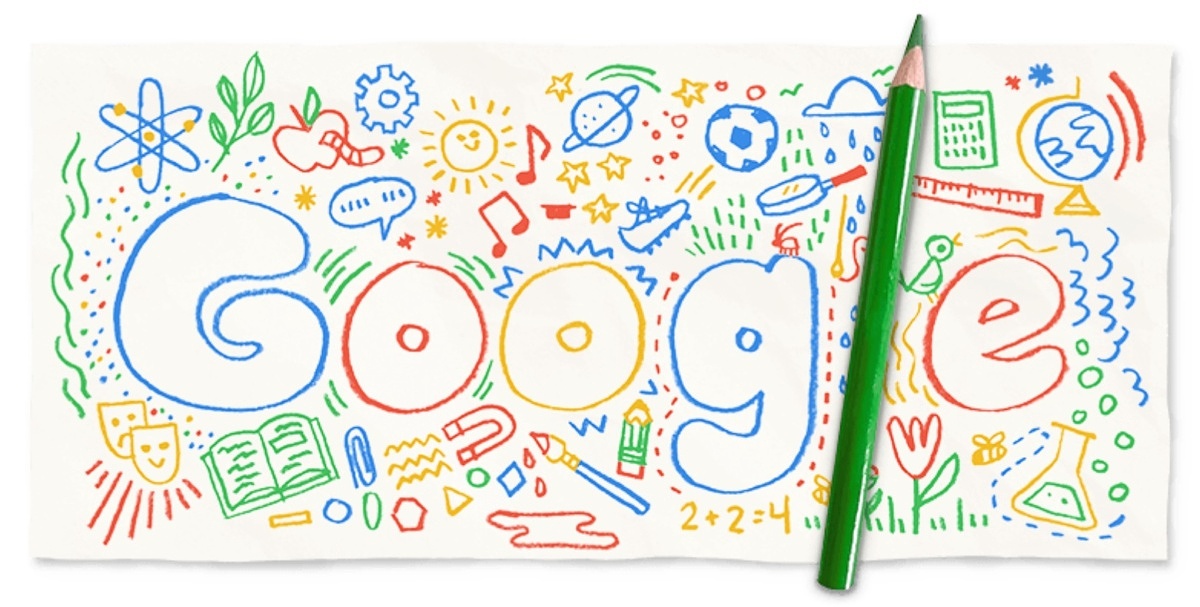 Google
2+2=4